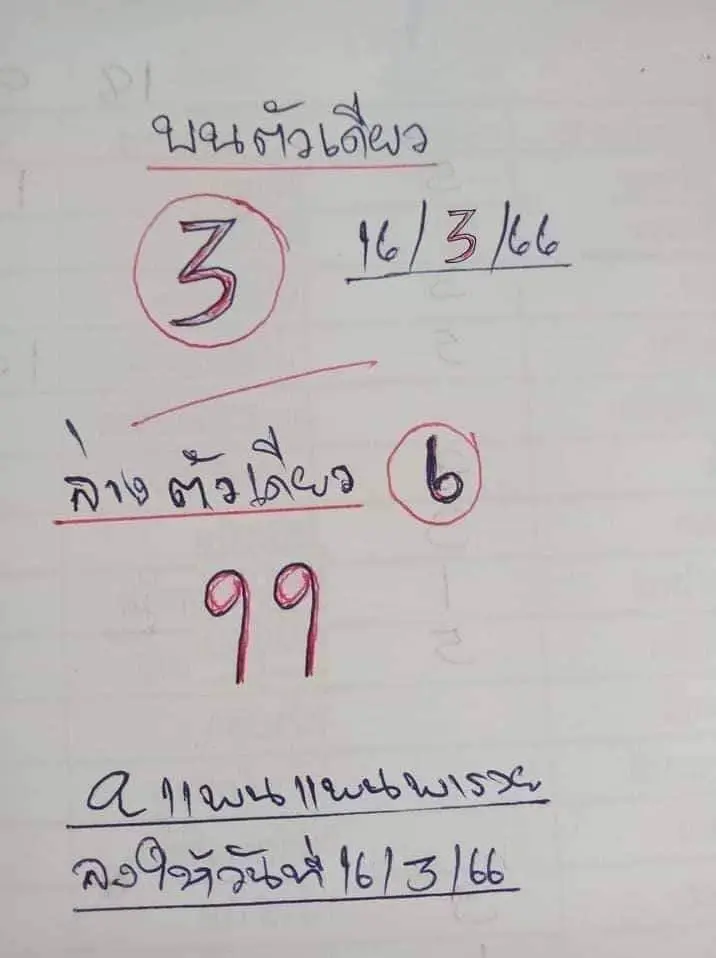 บนตัวเดียว
3 16/3/66
ล่างตัวเดียว 6
99
a แพนแพนพารวย
ลงให้วันที่ 16/3/66